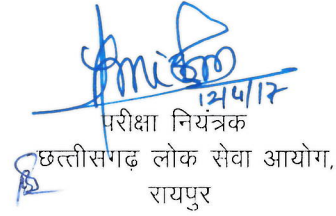 12/4/17
परीक्षा नियंत्रक
छत्तीसगढ़ लोक सेवा आयोग,
रायपुर